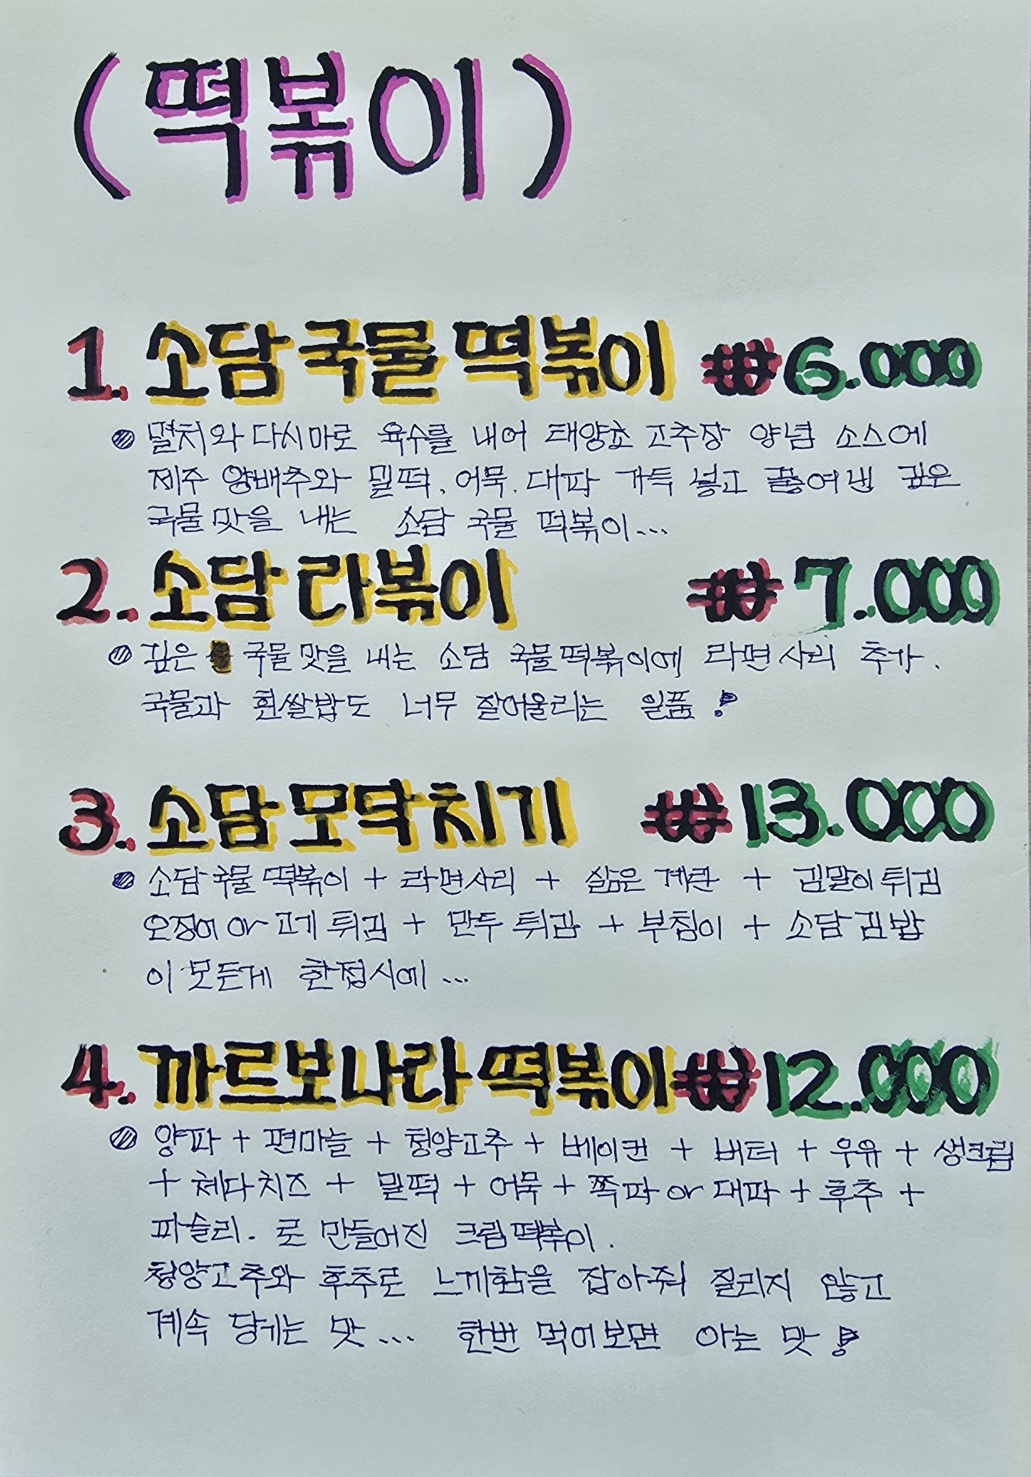 (떡볶이)
1. 소담 국물 떡볶이 ₩6.000
멸치와 다시마로 육수를 내어 태양초 고추장 양념 소스에
제주 양배추와 밀떡. 어묵. 대파 가득 넣고 끓여낸 깊은
국물 맛을 내는 소담 국물 떡볶이...
2. 소담 라볶이 ₩7.000
깊은 국물 맛을 내는 소담 국물떡볶이에 라면사리 추가.
국물과 흰쌀밥도 너무 잘어울리는 일품!
3. 소담 모닥치기 ₩13.000
소담 국물 떡볶이 + 라면사리 + 삶은 계란 + 김말이 튀김
오징어 or 고기 튀김 + 만두 튀김 + 부침이 + 소담 김밥
이 모든게 한접시에...
4. 까르보나라 떡볶이 ₩12.000
양파 + 편마늘 + 청양고추 + 베이컨 + 버터 + 우유 + 생크림
+ 체다치즈 + 밀떡 + 어묵 + 쪽파 or 대파 + 후추 +
파슬리. 로 만들어진 크림떡볶이.
청양고추와 후추로 느끼함을 잡아줘 질리지 않고
계속 당기는 맛... 한번 먹어보면 아는 맛!